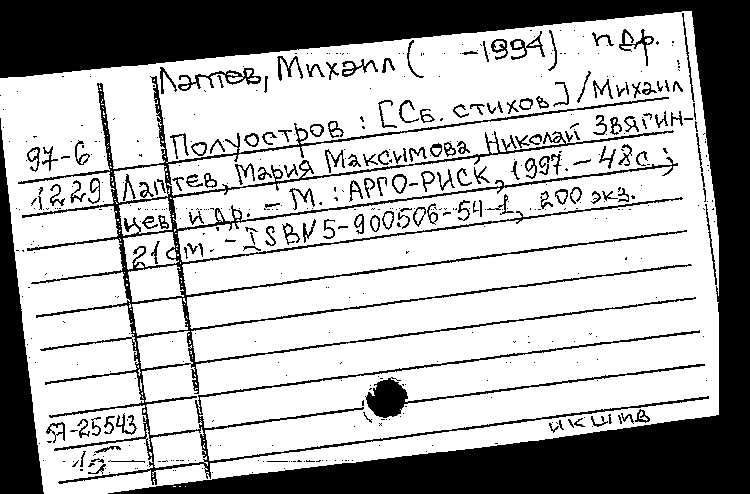 Лаптев, Михаил ( -1994) и др.
Полуостров : [Сб. стихов] / Михаил
97-6
1229 Лаптев, Мария Максимова, Николай Звягин-
цев и др. - М. : АРГО-РИСК, 1997. - 48с. ;
21 см. - ISBN 5-900506-54-1, 200 экз.
57-25543
15